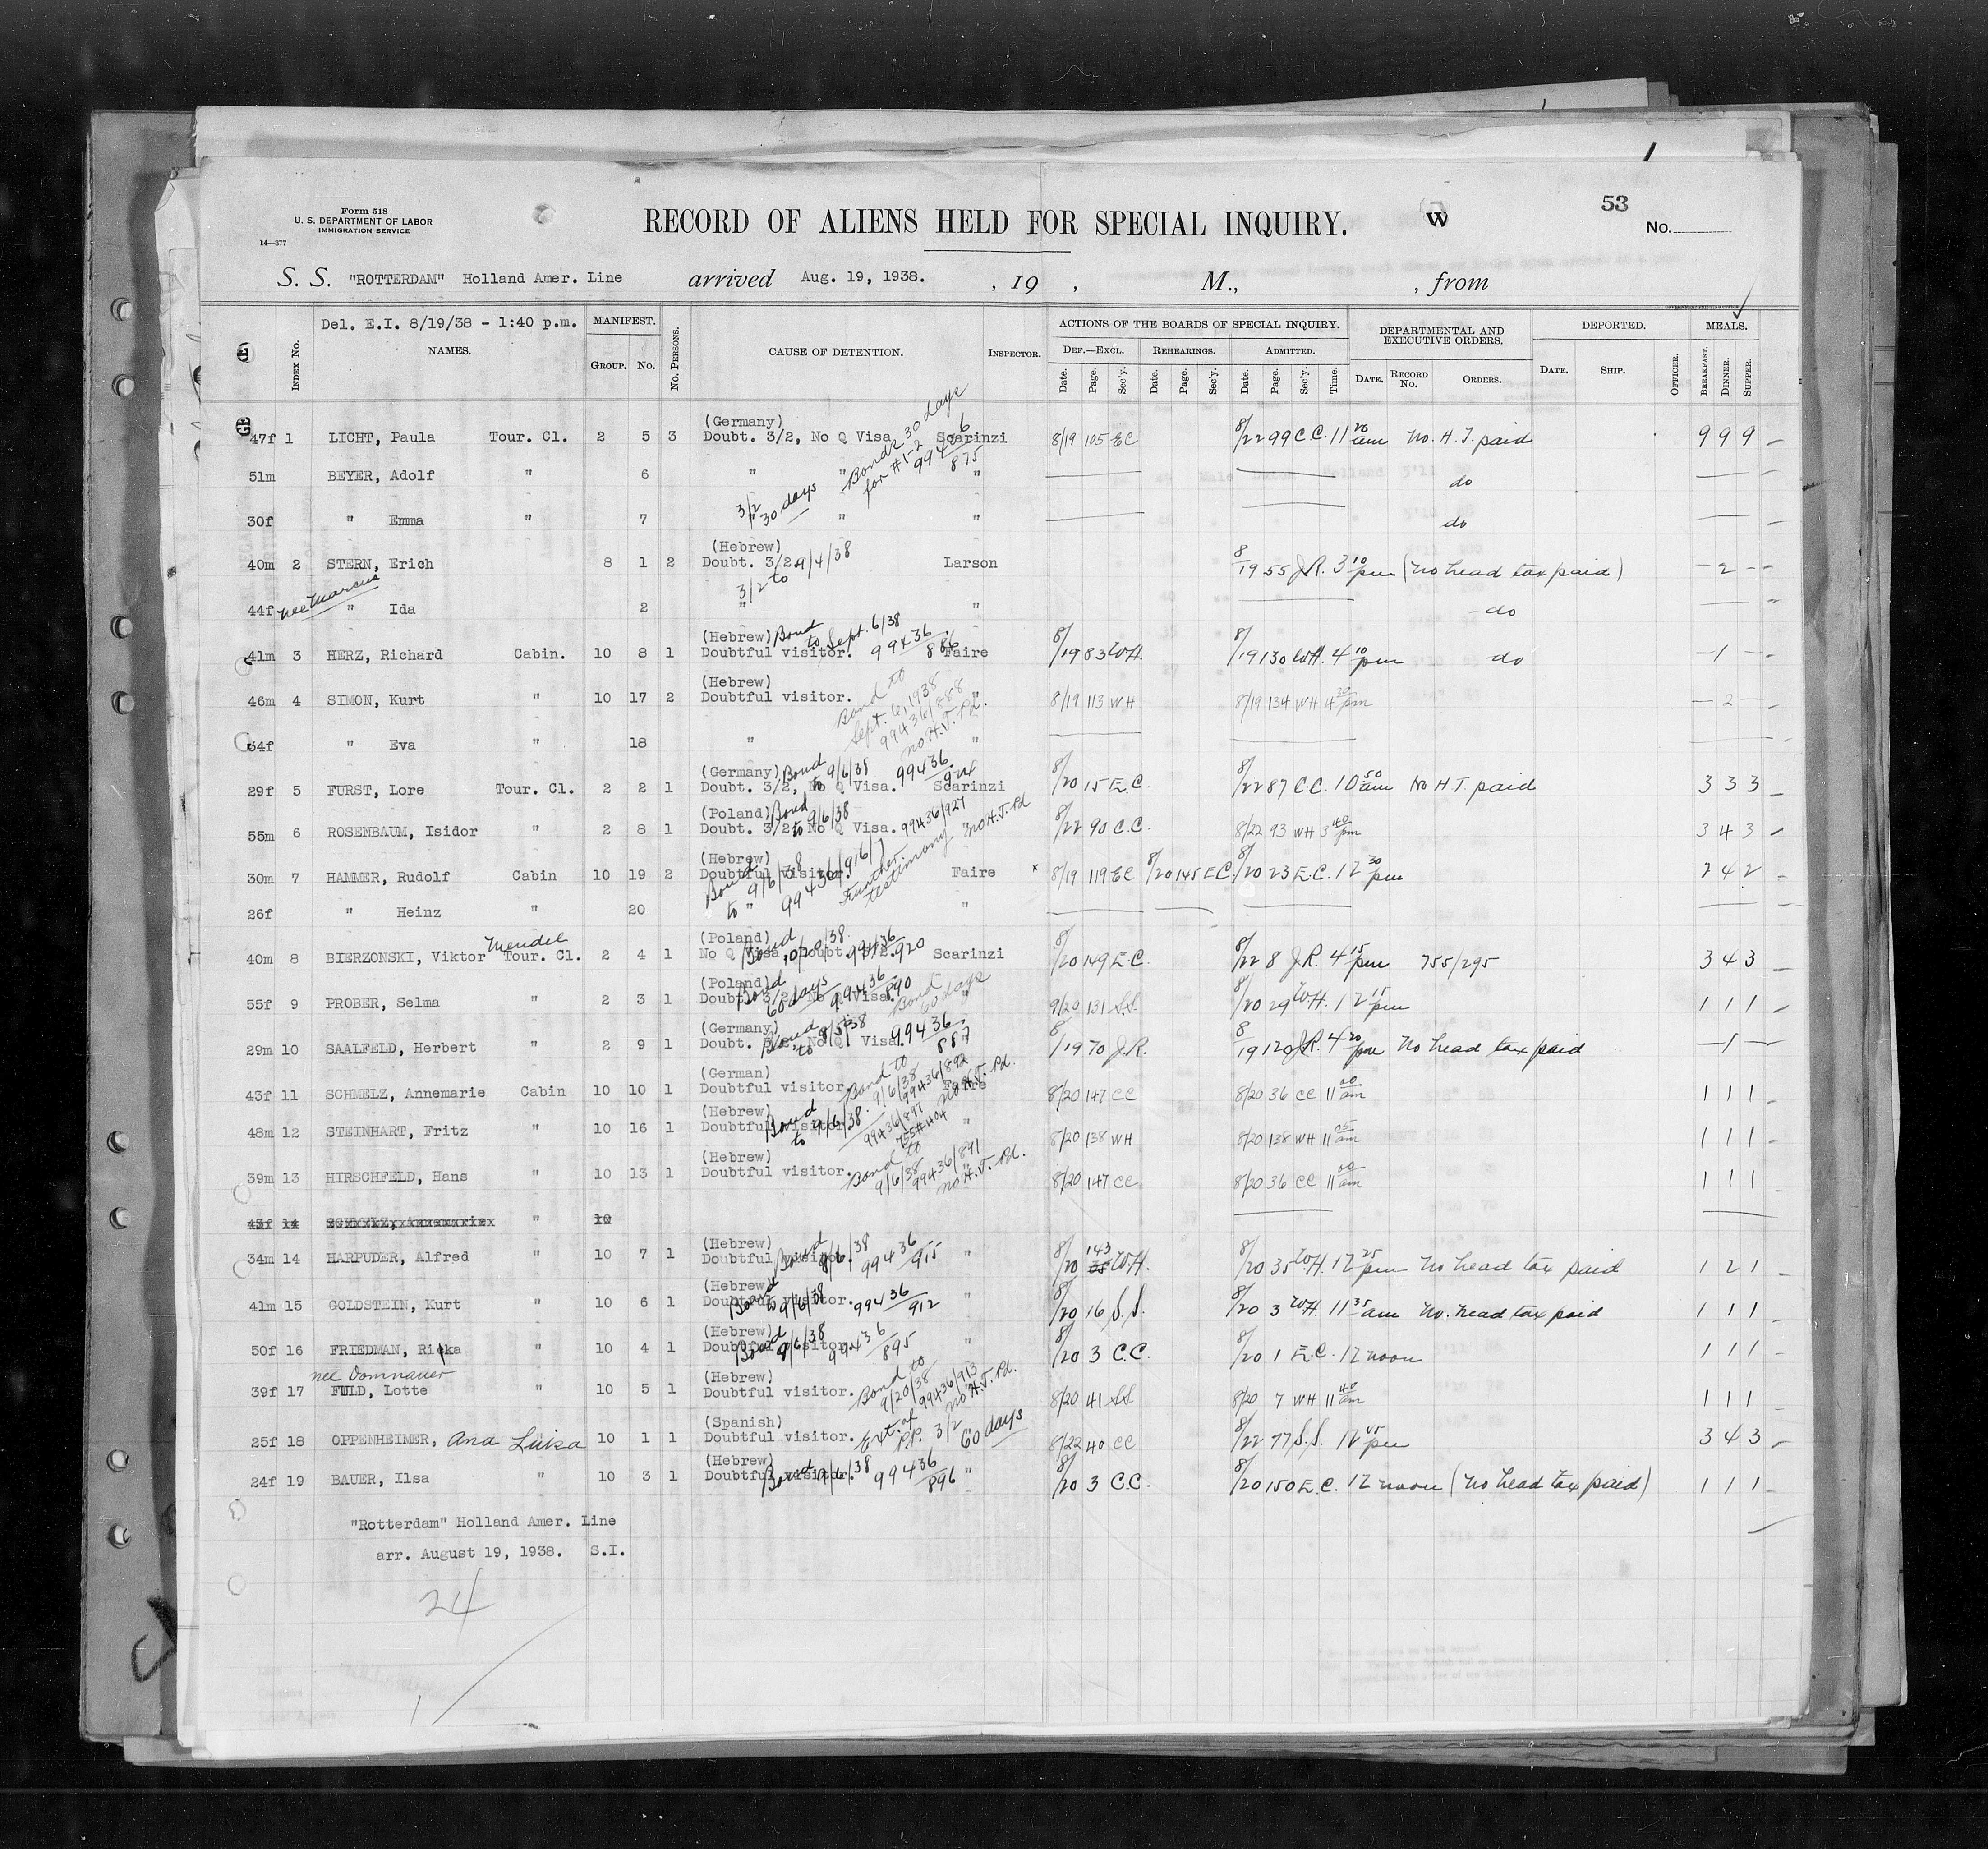 Form 518
U. S. DEPARTMENT OF LABOR
IMMIGRATION SERVICE
14—377
RECORD OF ALIENS HELD FOR SPECIAL INQUIRY.
W
53
No.
S. S. "ROTTERDAM" Holland Amer. Line arrived Aug. 19, 1938. , 19 , M., , from
Del. E.I. 8/19/38 - 1:40 p.m.
INDEX No. NAMES. MANIFEST. GROUP. No. No. PERSONS. CAUSE OF DETENTION. INSPECTOR. ACTIONS OF THE BOARDS OF SPECIAL INQUIRY. DEF.—EXCL. REHEARINGS. ADMITTED. DEPARTMENTAL AND EXECUTIVE ORDERS. DEPORTED. MEALS.
Date. Page. Sec'y. Date. Page. Sec'y. Date. Page. Sec'y. Time. DATE. RECORD No. ORDERS. DATE. SHIP. OFFICER. BREAKFAST. DINNER. SUPPER.
(Germany) Bonds 30 days for #1-2 99436/875
47f 1 LICHT, Paula Tour. Cl. 2 5 3 Doubt. 3/2, No Q Visa Scarinzi 8/19 105 EC 8/22 99 C.C. 11 20 am No. H. T. paid 9 9 9
51m BEYER, Adolf " 6 " " " do
3/2 30 days
30f " Emma " 7 " " " do
(Hebrew)
40m 2 STERN, Erich 8 1 2 Doubt. 3/2 9/4/38 Larson 8/19 55 J.R. 3 10 pm (No head tax paid) 2
nee Marcus 3/2 to
44f " Ida 2 " " do
(Hebrew) Bond to Sept. 6/38 99436/886
41m 3 HERZ, Richard Cabin. 10 8 1 Doubtful visitor. Faire 8/19 83 W.H. 8/19 130 W.H. 4 10 pm do 1
(Hebrew) Bond to Sept. 6, 1938 99436/888 no H.T. Pd.
46m 4 SIMON, Kurt " 10 17 2 Doubtful visitor. " 8/19 113 WH 8/19 134 WH 4 20 pm 2
34f " Eva " 18 " "
(Germany) Bond to 9/6/38 99436
29f 5 FURST, Lore Tour. Cl. 2 2 1 Doubt. 3/2, No Q Visa. Scarinzi 8/20 15 E.C. 8/22 87 C.C. 10 50 am No H T. paid 3 3 3
(Poland) Bond to 9/6/38 99436/927 no H.T. Pd
55m 6 ROSENBAUM, Isidor " 2 8 1 Doubt. 3/2 No Q Visa. " 8/22 90 C.C. 8/22 93 WH 3 40 pm 3 4 3
(Hebrew) Bond to 9/6/38 99436/916/7 Further testimony
30m 7 HAMMER, Rudolf Cabin 10 19 2 Doubtful visitor. Faire 8/19 119 EC 8/20 145 E.C. 8/20 23 E.C. 12 30 pm 2 4 2
26f " Heinz " 20 " "
(Poland) Bond 10/20/38 99436/920
40m 8 BIERZONSKI, Viktor Mendel Tour. Cl. 2 4 1 No Q Visa, Doubt. 3/2. Scarinzi 8/20 149 E.C. 8/22 8 J.R. 4 15 pm 755/295 3 4 3
(Poland) Bond 60 days 99436/890 Bond 60 days
55f 9 PROBER, Selma " 2 3 1 Doubt. 3/2 No Q Visa. " 9/20 131 S.S. 8/20 29 W.H. 12 15 pm 1 1 1
(Germany) Bond to 8/5/38 99436/887
29m 10 SAALFELD, Herbert " 2 9 1 Doubt. 3/2, No Q Visa 8/19 70 J.R. 8/19 120 J.R. 4 20 pm No head tax paid 1
(German) Bond to 9/6/38 99436/892 no H.T. Pd.
43f 11 SCHMELZ, Annemarie Cabin 10 10 1 Doubtful visitor. Faire 8/20 147 CC 8/20 36 CC 11 00 am 1 1 1
(Hebrew) Bond to 9/6/38. 99436/897
48m 12 STEINHART, Fritz " 10 16 1 Doubtful visitor. " 8/20 138 WH 8/20 138 WH 11 05 am 1 1 1
(Hebrew) Bond to 9/6/38 99436/891 no H.T. Pd.
39m 13 HIRSCHFELD, Hans 10 13 1 Doubtful visitor. 8/20 147 CC 8/20 36 CC 11 00 am 1 1 1
43f 14 SCHMELZ, Annemarie " 10
(Hebrew) Bond 9/6/38 99436/915
34m 14 HARPUDER, Alfred " 10 7 1 Doubtful visitor. " 8/20 143 35 W.H. 8/20 35 W.H. 12 25 pm No head tax paid 1 2 1
(Hebrew) Bond to 9/6/38 99436/912
41m 15 GOLDSTEIN, Kurt " 10 6 1 Doubtful visitor. " 8/20 16 S.S. 8/20 3 W.H. 11 35 am No. head tax paid 1 1 1
(Hebrew) Bond 9/6/38 99436/895
50f 16 FRIEDMAN, Ricka " 10 4 1 Doubtful visitor. " 8/20 3 C.C. 8/20 1 E.C. 12 noon 1 1 1
nee Domnauer (Hebrew) Bond to 9/20/38 99436/913 no H.T. Pd.
39f 17 FULD, Lotte " 10 5 1 Doubtful visitor. 8/20 41 SS 8/20 7 WH 11 40 am 1 1 1
(Spanish) Ext. of P.P. 3/2 60 days
25f 18 OPPENHEIMER, Ana Luisa 10 1 1 Doubtful visitor. 8/22 40 CC 8/22 77 S.S. 12 45 pm 3 4 3
(Hebrew) Bond 9/6/38 99436/896
24f 19 BAUER, Ilsa " 10 3 1 Doubtful visitor. " 8/20 3 C.C. 8/20 150 E.C. 12 noon (No head tax paid) 1 1 1
"Rotterdam" Holland Amer. Line
arr. August 19, 1938. S.I.
24